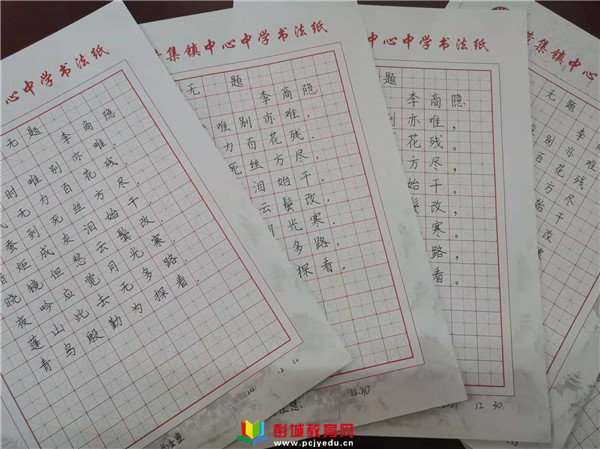 心中学书法纸
无题 李商隐
时难别亦难,
无力百花残。
蚕到死丝方尽,
炬成灰泪始干。
晓镜但愁云鬓改,
夜吟应觉月光寒。
蓬山此去无多路,
青鸟殷勤为探看。
12.30
集镇中心中学书法纸
无题 李商隐
难别亦难,
力百花残。
死丝方尽,
泪始干。
云鬓改,
月光寒。
多路,
探看。
12.30
心中学书法纸
题 李商隐
亦难,
花残。
方尽,
始干。
鬓改,
寒。
路,
看。
12.30.
集镇中心
无题
难别亦难
力百花残
死丝方
泪始
彭城教育网
www.pcjyedu.cn